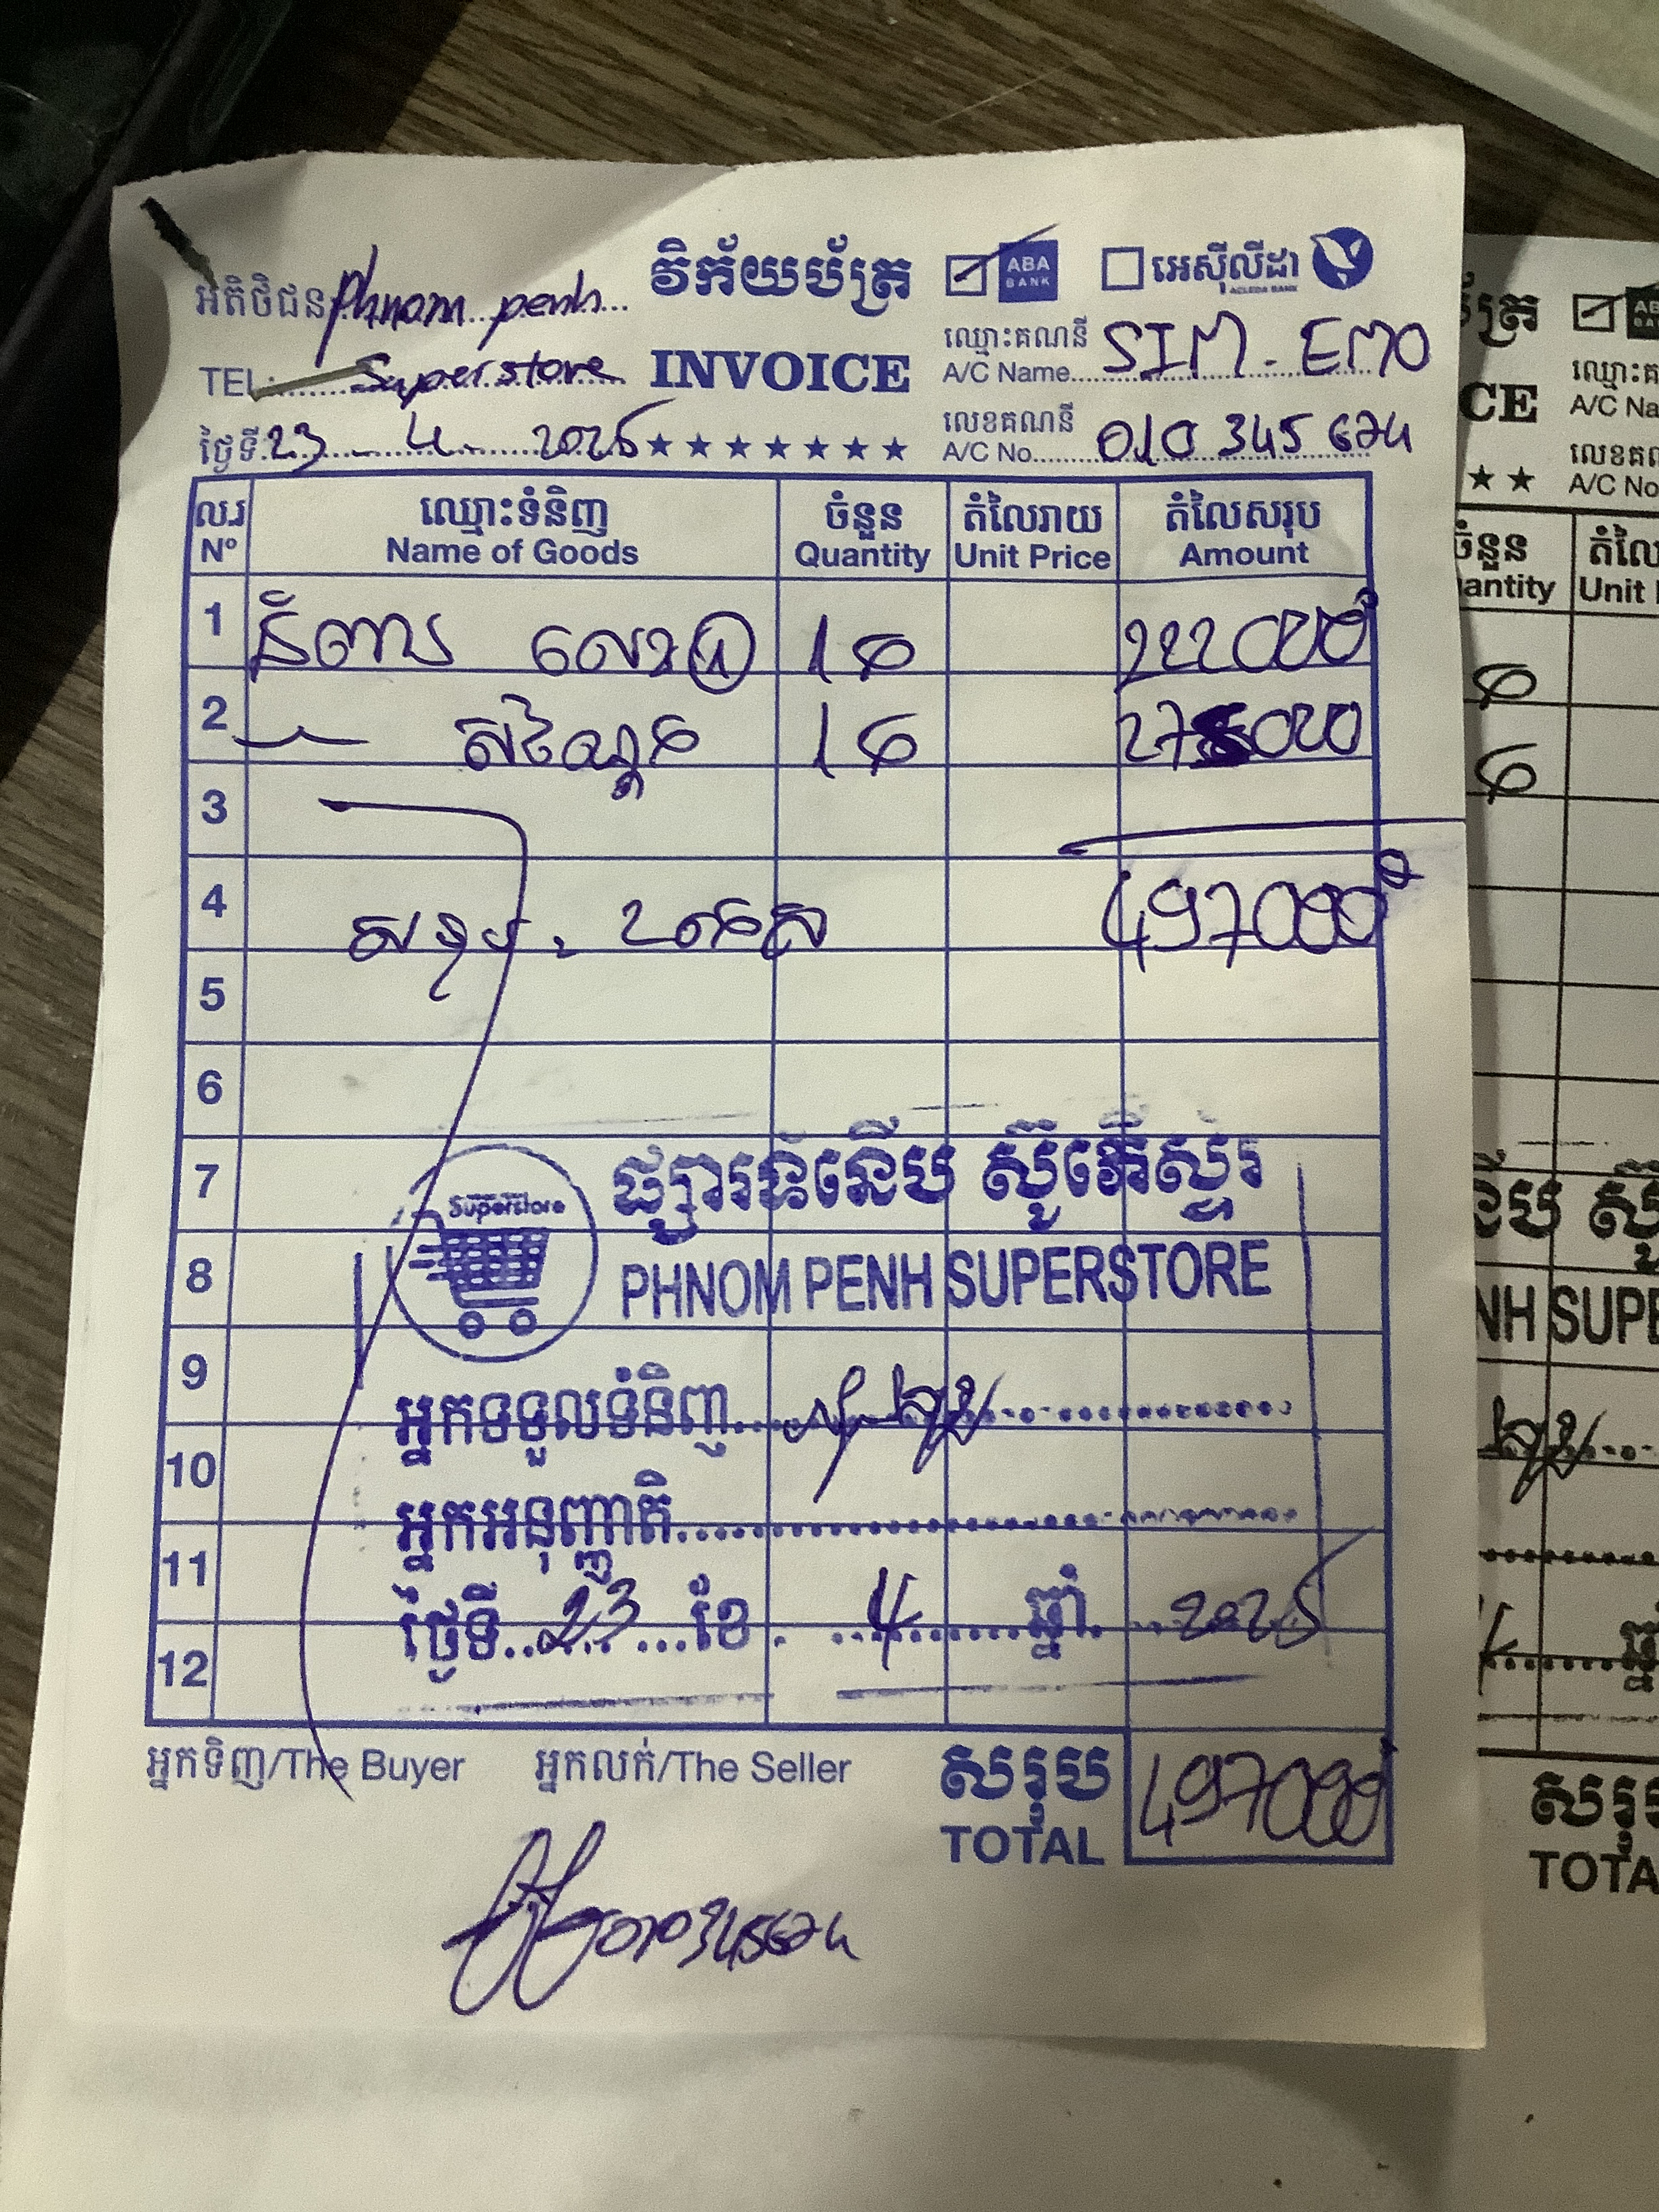 វិក័យប័ត្រ
INVOICE
★★★★★★★
អតិថិជន Phnom penh
TEL: Superstore
ថ្ងៃទី 23 - 4 - 2025
ABA BANK
អេស៊ីលីដា
ACLEDA BANK
ឈ្មោះគណនី
A/C Name SIM - EMO
លេខគណនី
A/C No 010 345 674
ល.រ ឈ្មោះទំនិញ ចំនួន តំលៃរាយ តំលៃសរុប
Nº Name of Goods Quantity Unit Price Amount
1 នំពាយ លេខ 1 222000
2 សណ្តែក 275000
3
4 សរុប 497000
5
6
7 ផ្សារទំនើប ស៊ូភើស្ទ័រ
Superstore
8 PHNOM PENH SUPERSTORE
9 អ្នកទទួលទំនិញ
10 អ្នកអនុញ្ញាតិ
11 ថ្ងៃទី 23 ខែ 4 ឆ្នាំ 2025
12
អ្នកទិញ/The Buyer អ្នកលក់/The Seller សរុប 497000
TOTAL
010345674